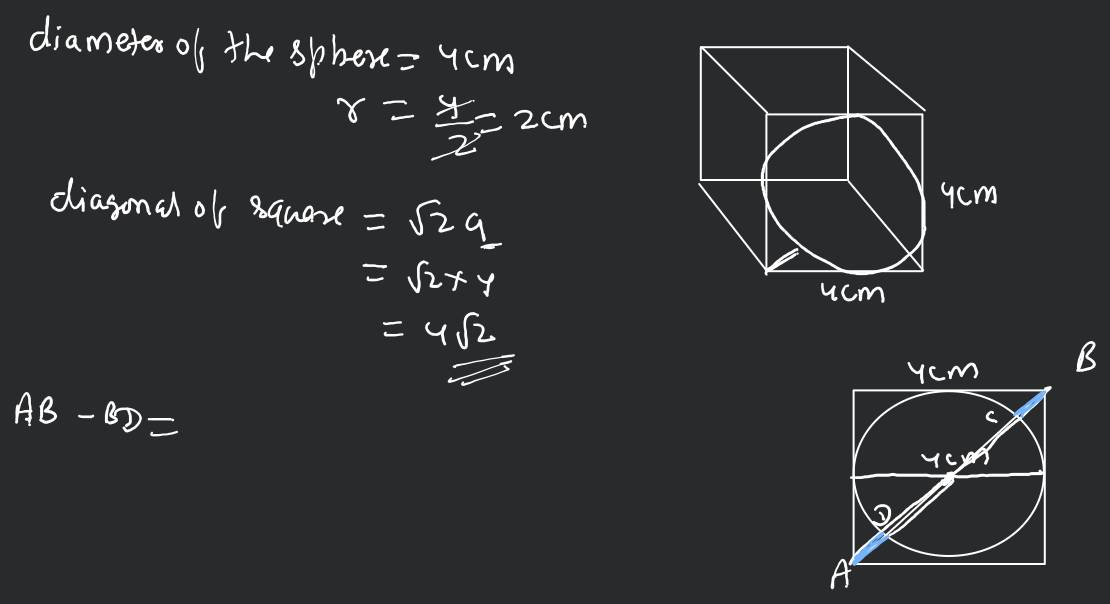 diameter of the sphere = 4cm
r = 4/2 = 2cm
diagonal of square = √2 a
= √2 × 4
= 4√2
AB - BD =
4cm
4cm
4cm
B
C
4cm
D
A